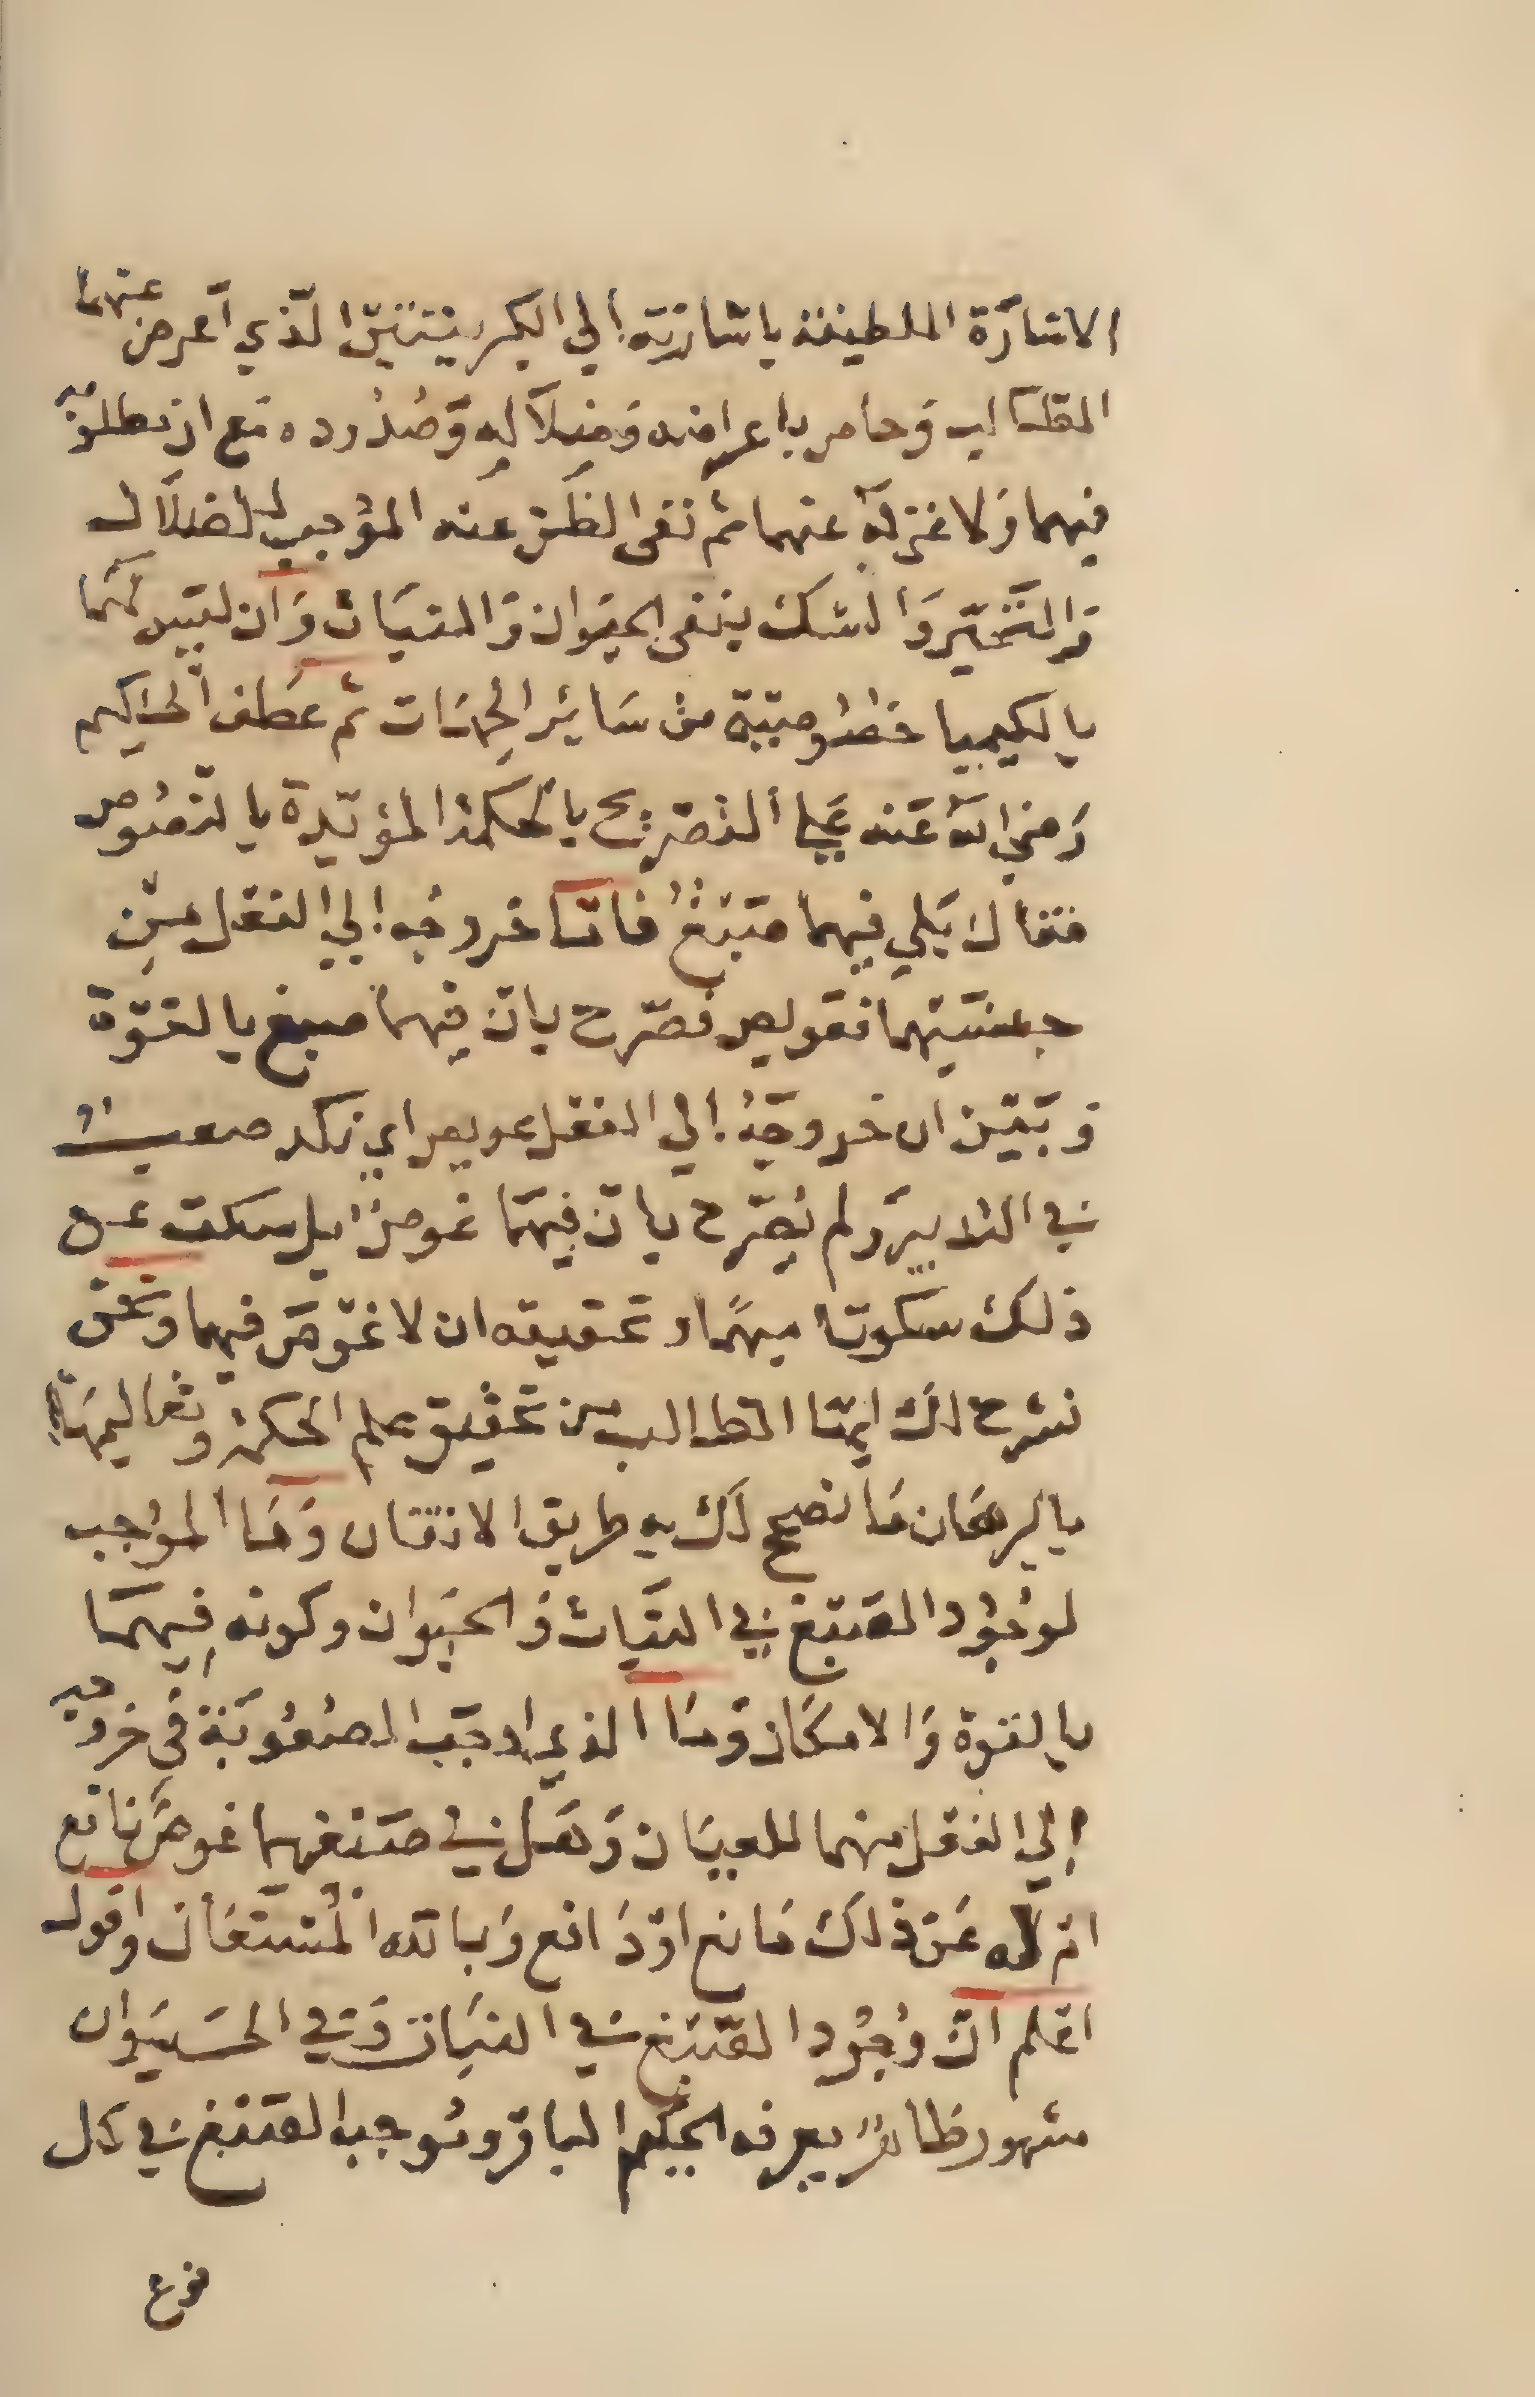 الاشارة اللطيفة باشارته الي الكبريتين الذي اعرض عنهما
الطالب وحامر باعراضه وضلاله وصدوره مع ان مطلوبه
فيهما ولا غزله عنهما ثم نفى الظن عنه الموجب للضلال
والتحير والشك بنفى الحيوان والنبات وان ليس لهما
بالكيميا خصوصية من ساير الجهات ثم عطف الحكيم
رضي الله عنه علي التصريح بالحكمة المؤيدة بالنصوص
فقال بلي فيهما صبغ فاما خروجه الي الفعل من
جنسيتهما فعويص فصرح بان فيهما صبغ بالقوة
وبين ان خروجه الي الفعل عويص اي نكد صعب
في التدبير ولم يصرح بان فيهما غوص بل سكت عن
ذلك سكوتا مبهما وتحقيقه ان لا غوص فيهما ونحن
نشرح لك ايها الطالب من تحقيق علم الحكمة وتعاليمها
بالبرهان ما نصحح لك به طريق الاتقان وما الموجب
لوجود الصبغ في النبات والحيوان وكونه فيهما
بالقوة والامكان وما الذي اوجب الصعوبة في خروجه
الي الفعل منهما للعيان وهل في صبغهما غوص نافع
ام له عن ذلك مانع او دافع وبالله المستعان واقول
اعلم ان وجود الصبغ في النبات وفي الحيوان
مشهور ظاهر يعرفه الحكيم الباقر وموجب الصبغ في كل
نوع